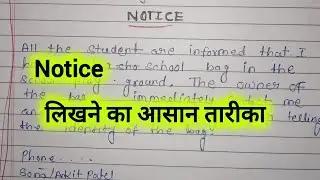 NOTICE
All the student are informed that I
school bag in the
ground. The owner of
the immediately me
telling
the identity of the bag.
Notice
लिखने का आसान तारीका
Phone.....
Sona/Ankit Patel